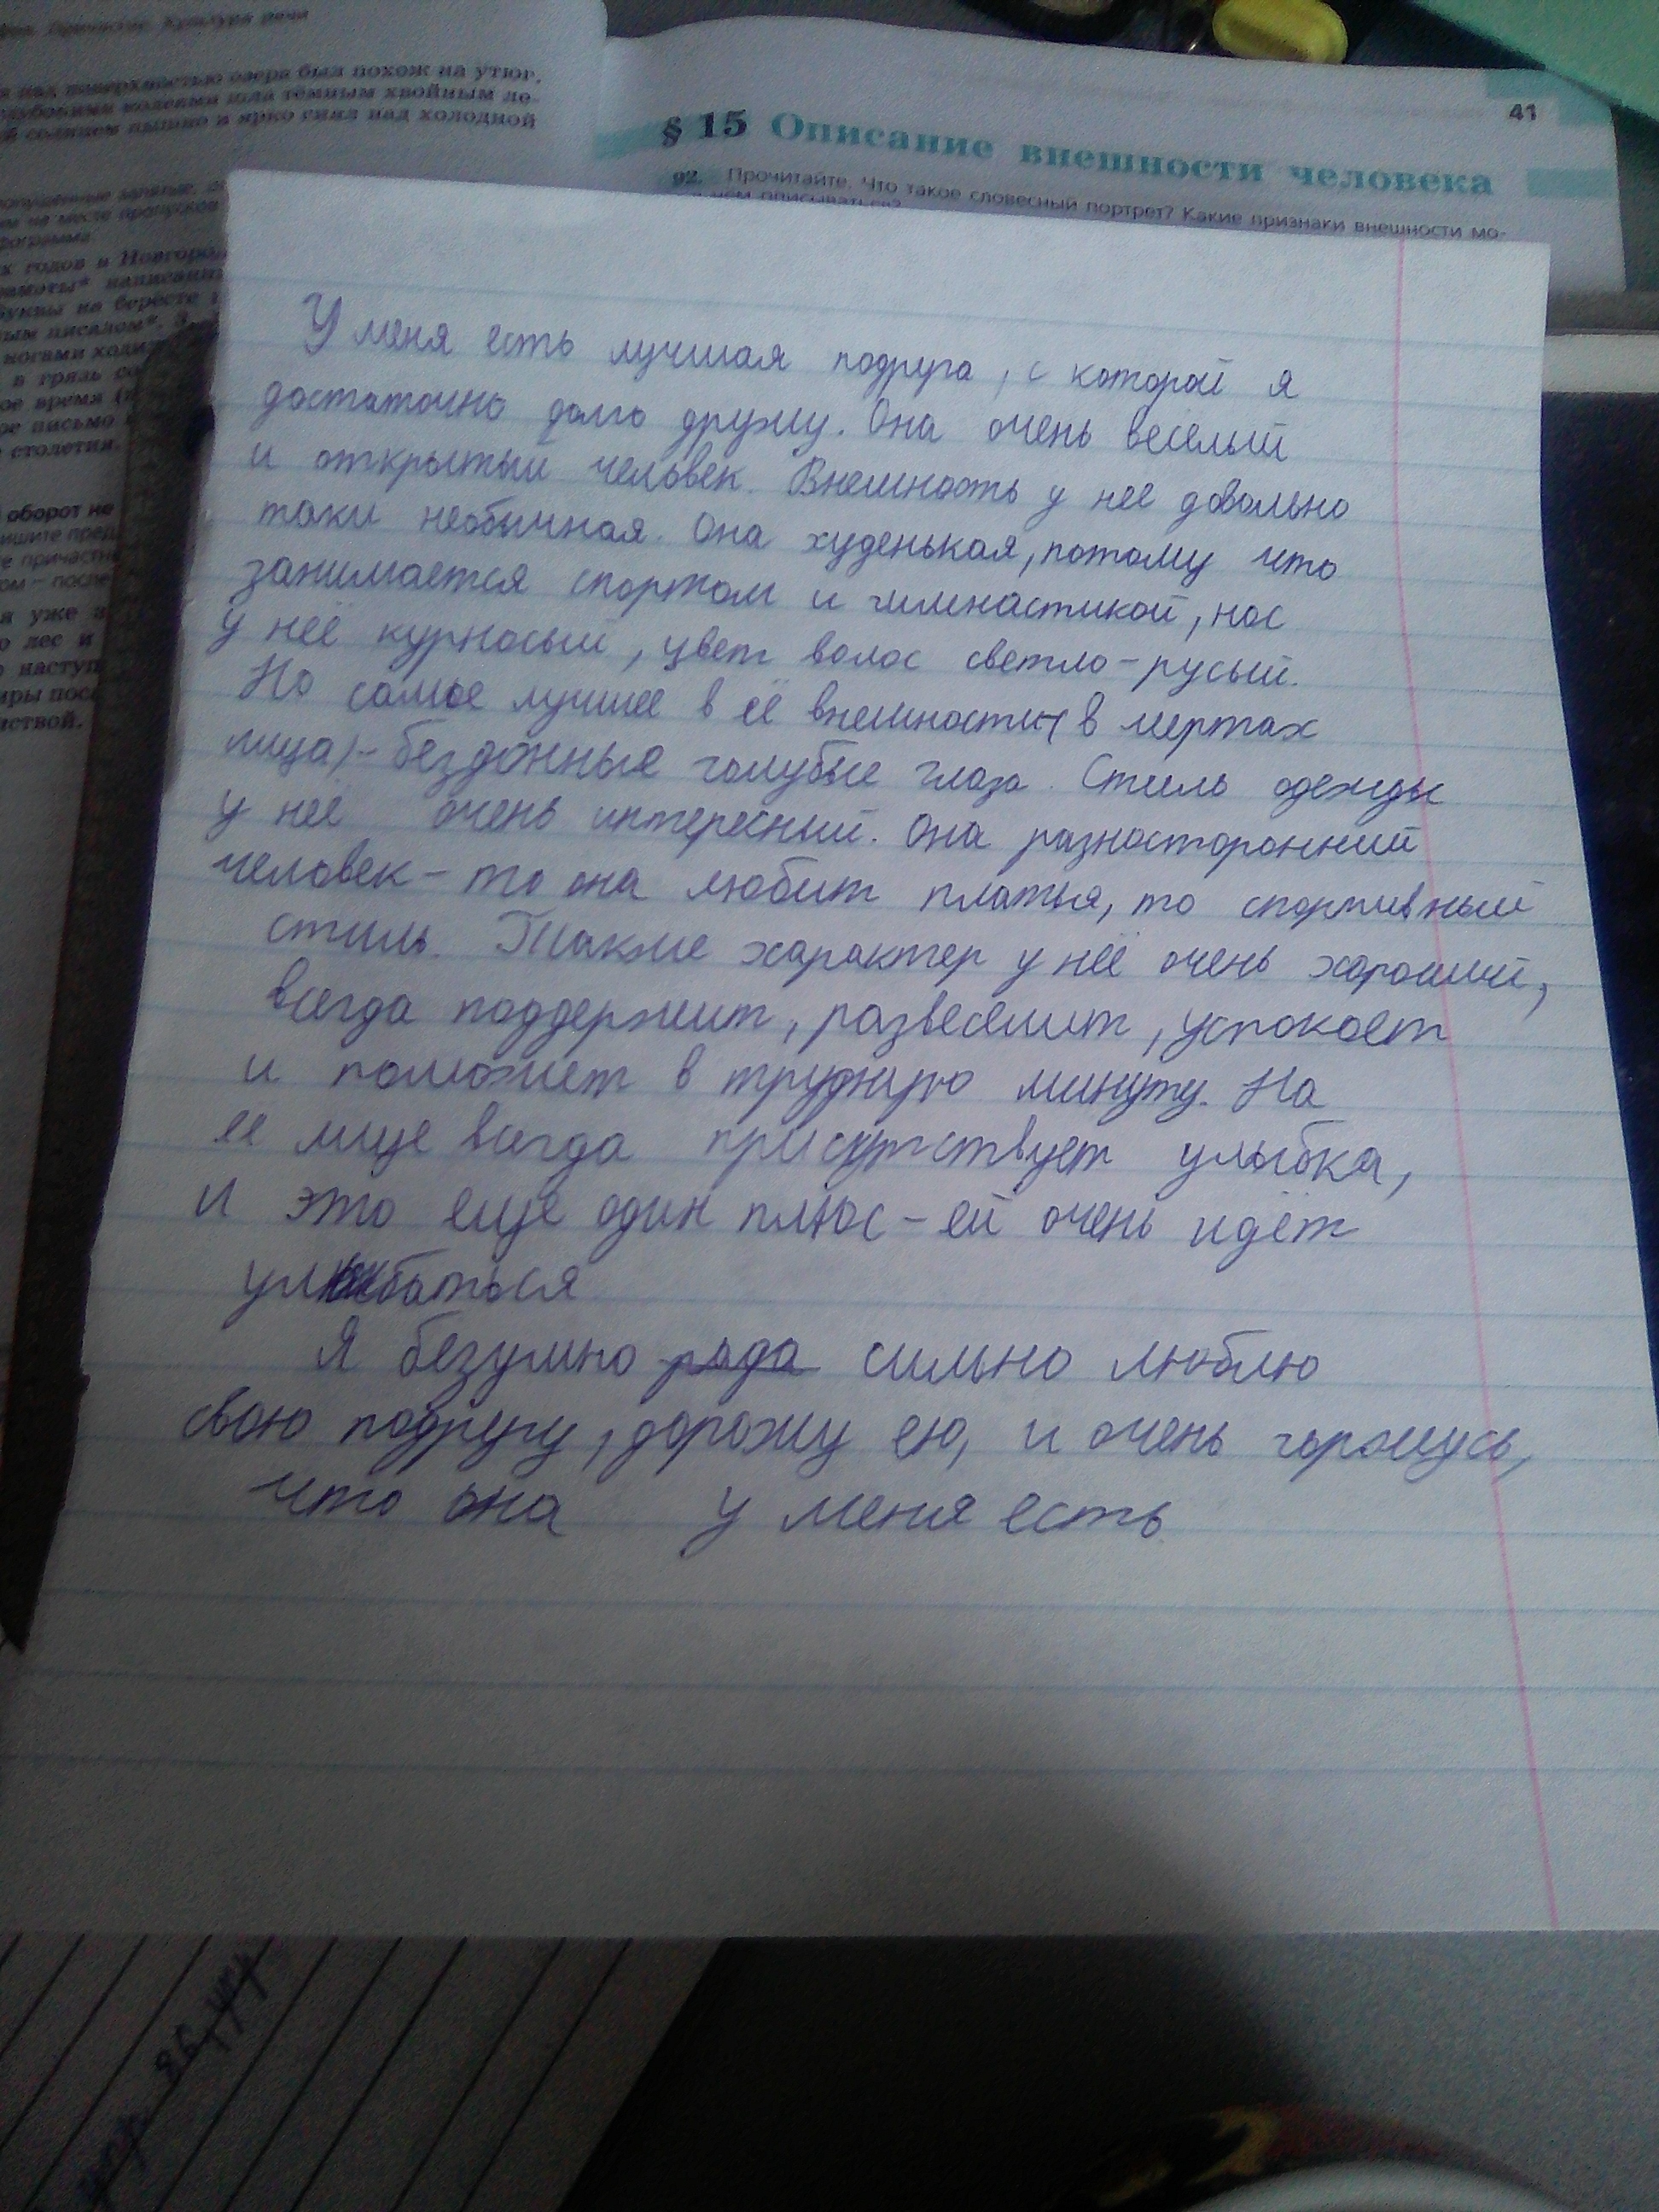 над поверхностью озера был похож на утюг.
глубокими колеями шла тёмным хвойным ле-
солнцем пышно и ярко сиял над холодной
41
§ 15 Описание внешности человека
92. Прочитайте. Что такое словесный портрет? Какие признаки внешности мо-
У меня есть лучшая подруга, с которой я
достаточно долго дружу. Она очень весёлый
и открытый человек. Внешность у неё довольно
таки необычная. Она худенькая, потому что
занимается спортом и гимнастикой, нос
у неё курносый, цвет волос светло-русый.
Но самое лучшее в её внешности (в чертах
лица) - бездонные голубые глаза. Стиль одежды
у неё очень интересный. Она разносторонний
человек - то она любит платья, то спортивный
стиль. Также характер у неё очень хороший,
всегда поддержит, развеселит, успокоет
и поможет в трудную минуту. На
ее лице всегда присутствует улыбка,
и это еще один плюс - ей очень идёт
улыбаться
Я безумно рада сильно люблю
свою подругу, дорожу ею, и очень горжусь,
что она у меня есть
годов в Новгород
буквы на бересте
ногами ходи
в грязь
ое время
письмо
столетия.
оборот не
уже
лес и
наступ